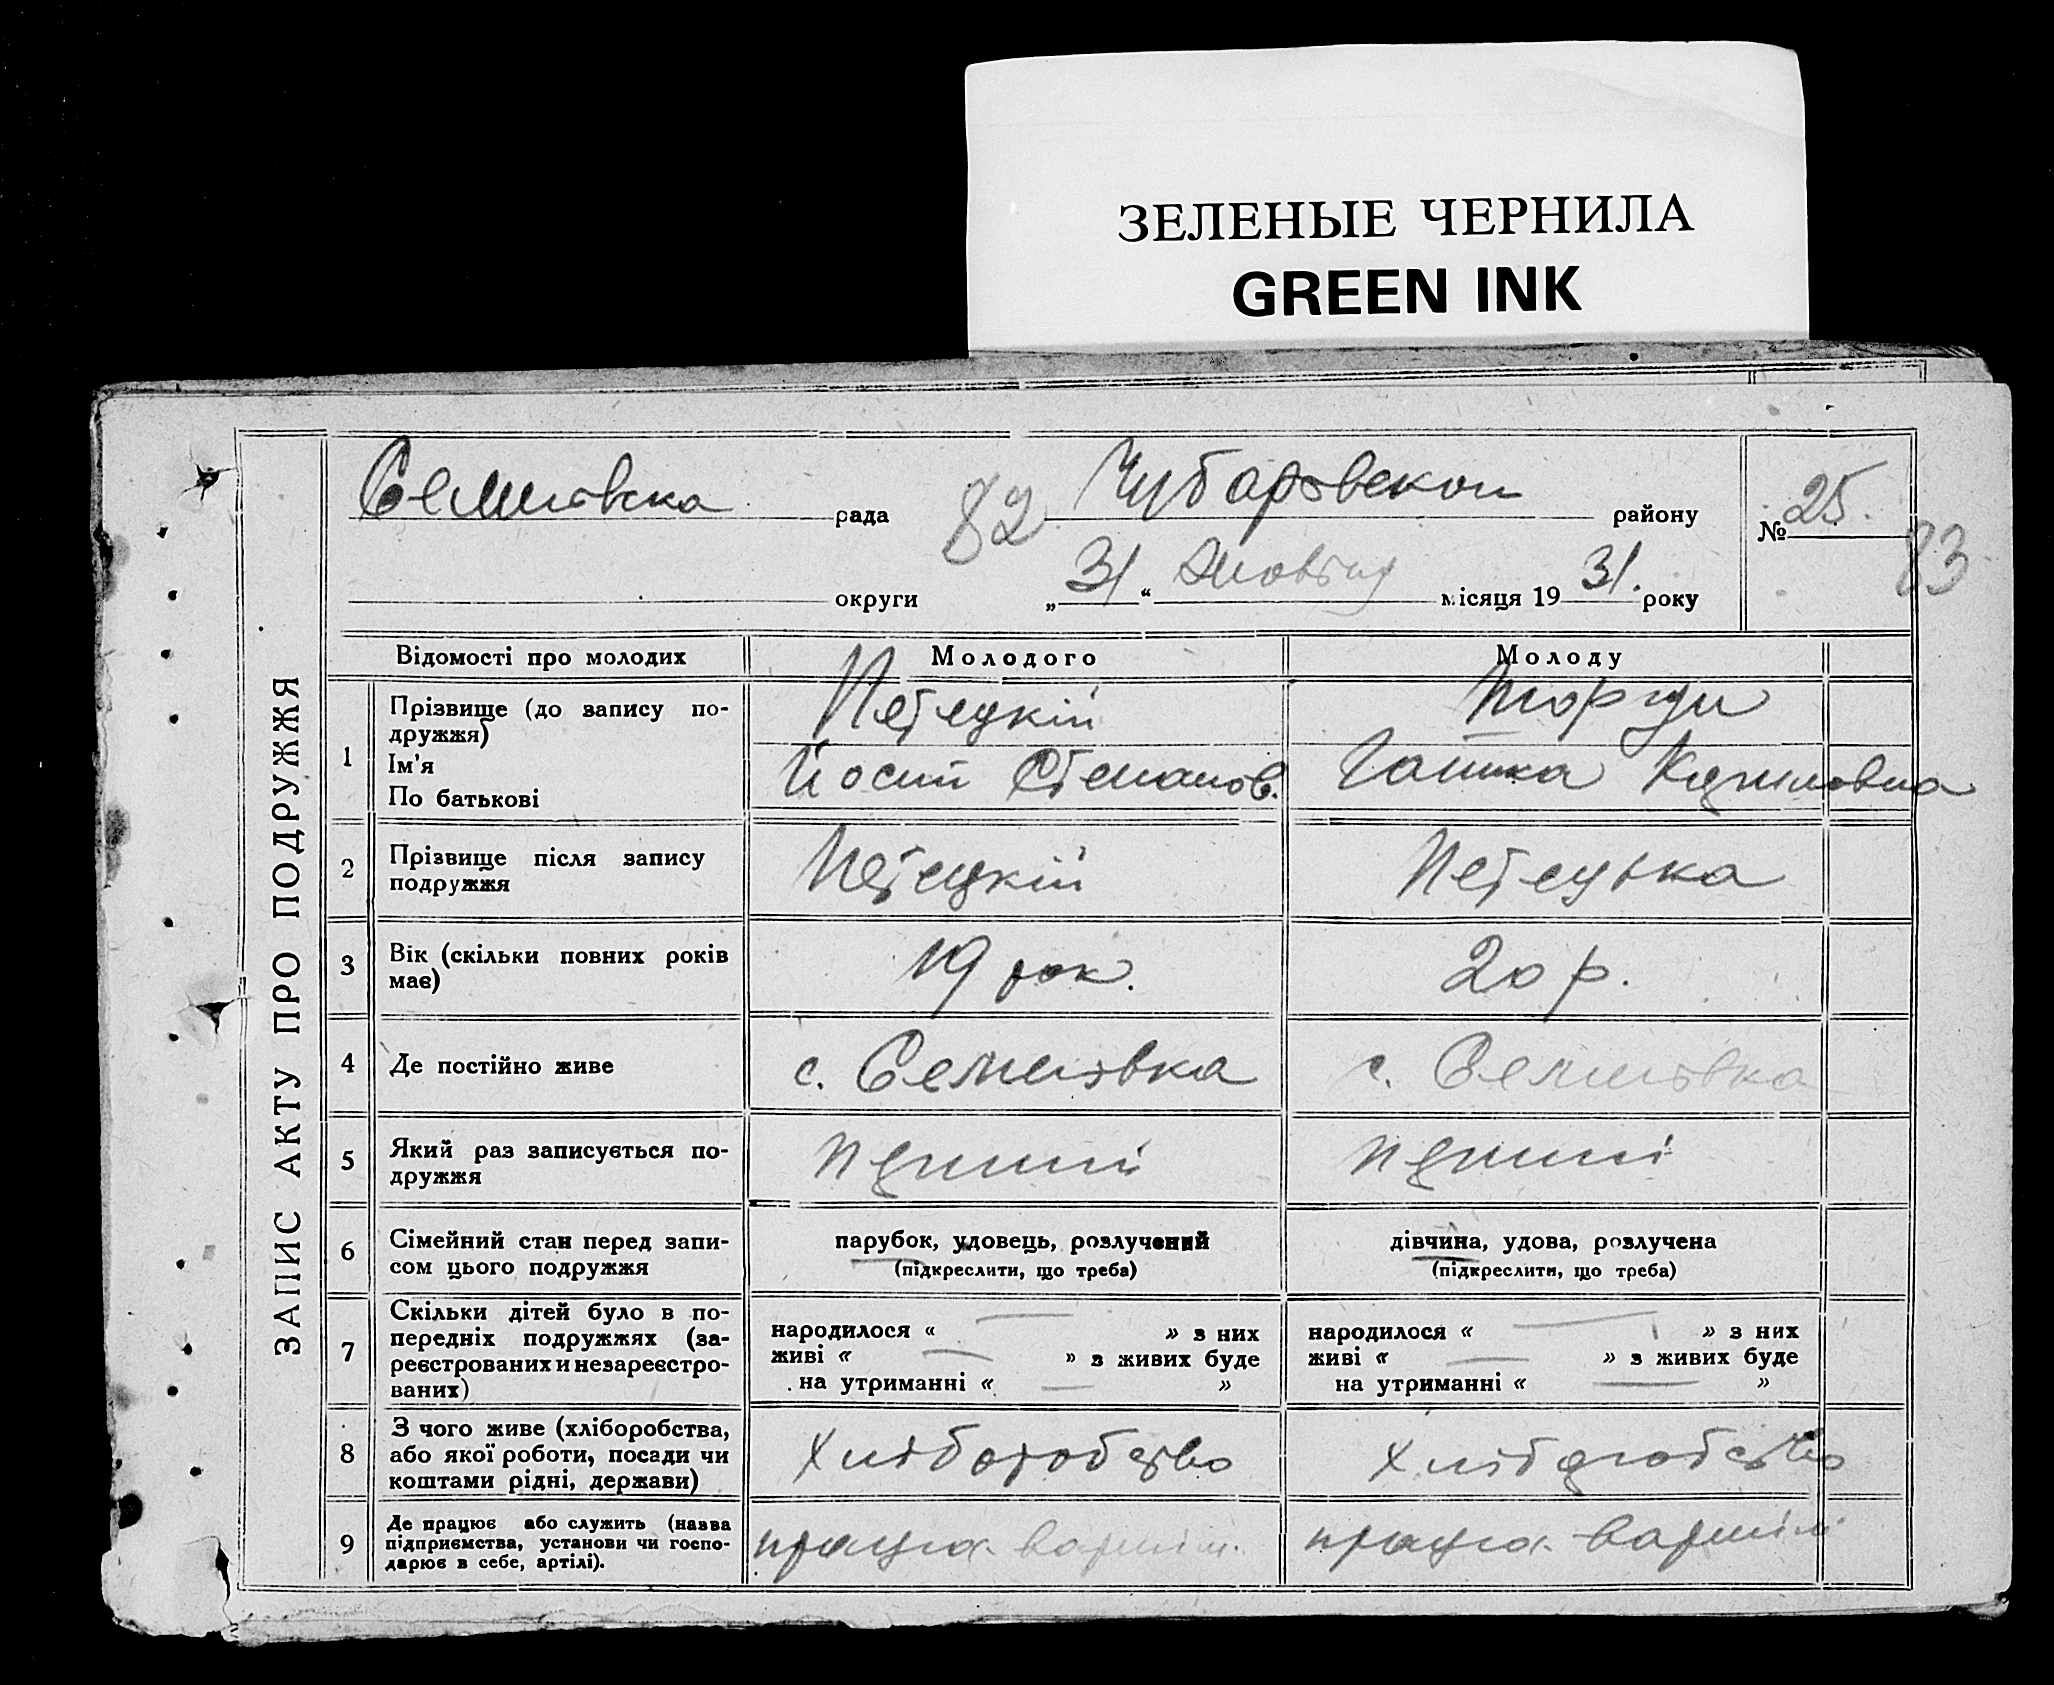 ЗЕЛЕНЫЕ ЧЕРНИЛА
GREEN INK
ЗАПИС АКТУ ПРО ПОДРУЖЖЯ
Семенівска рада 82 Чубаровскои району № 25. 83
округи „31“ Жовтня місяця 1931. року
Відомості про молодих Молодого Молоду
1 Прізвище (до запису по-
дружжя)
Ім'я
По батькові
Петецкій
Йосип Степанов.
Гашка
2 Прізвище після запису
подружжя
Петецкій Петецька
3 Вік (скільки повних років
має)
19 рок. 20 р.
4 Де постійно живе с. Семенівка с. Семенівка
5 Який раз записується по-
дружжя
перший перший
6 Сімейний стан перед запи-
сом цього подружжя
парубок, удовець, розлучений
(підкреслити, що треба)
дівчина, удова, розлучена
(підкреслити, що треба)
7 Скільки дітей було в по-
передніх подружжях (за-
реєстрованих и незареєстро-
ваних)
народилося « — » з них
живі « — » з живих буде
на утриманні « — »
народилося « — » з них
живі « — » з живих буде
на утриманні « — »
8 З чого живе (хліборобства,
або якої роботи, посади чи
коштами рідні, держави)
Хліборобство Хліборобство
9 Де працює або служить (назва
підприємства, установи чи госпо-
дарює в себе, артілі).
працює в артілі працює в артілі